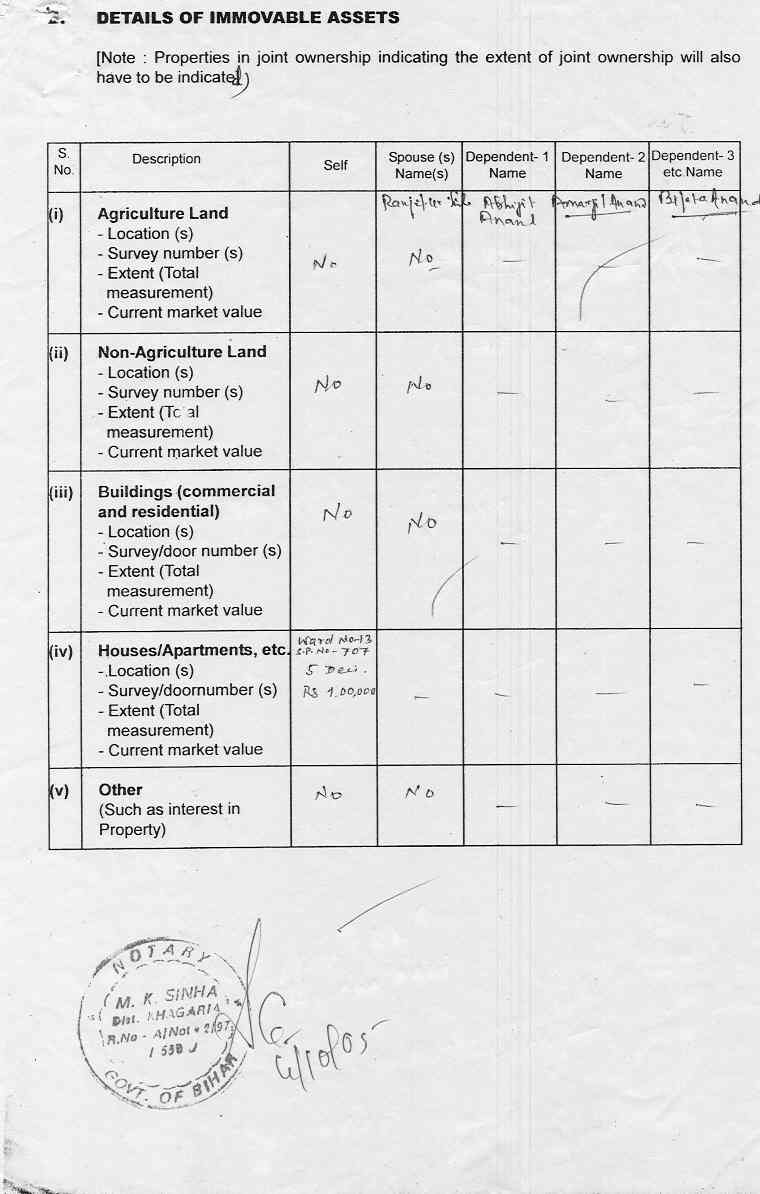 2. DETAILS OF IMMOVABLE ASSETS
[Note : Properties in joint ownership indicating the extent of joint ownership will also
have to be indicated)
S. No. Description Self Spouse (s) Name(s) Dependent- 1 Name Dependent- 2 Name Dependent- 3 etc. Name
Abhijit Anand Anand Anand
(i) Agriculture Land
- Location (s)
- Survey number (s)
- Extent (Total
measurement)
- Current market value
No No — — —
(ii) Non-Agriculture Land
- Location (s)
- Survey number (s)
- Extent (Total
measurement)
- Current market value
No No — — —
(iii) Buildings (commercial
and residential)
- Location (s)
- Survey/door number (s)
- Extent (Total
measurement)
- Current market value
No No — — —
(iv) Houses/Apartments, etc.
- Location (s)
- Survey/doornumber (s)
- Extent (Total
measurement)
- Current market value
Ward No-13
S.P. No - 707
5 Deci.
Rs 1,00,000
— — — —
(v) Other
(Such as interest in
Property)
No No — — —
NOTARY
M. K. SINHA
Dist. KHAGARIA
R.No - A/Not
GOVT. OF BIHAR